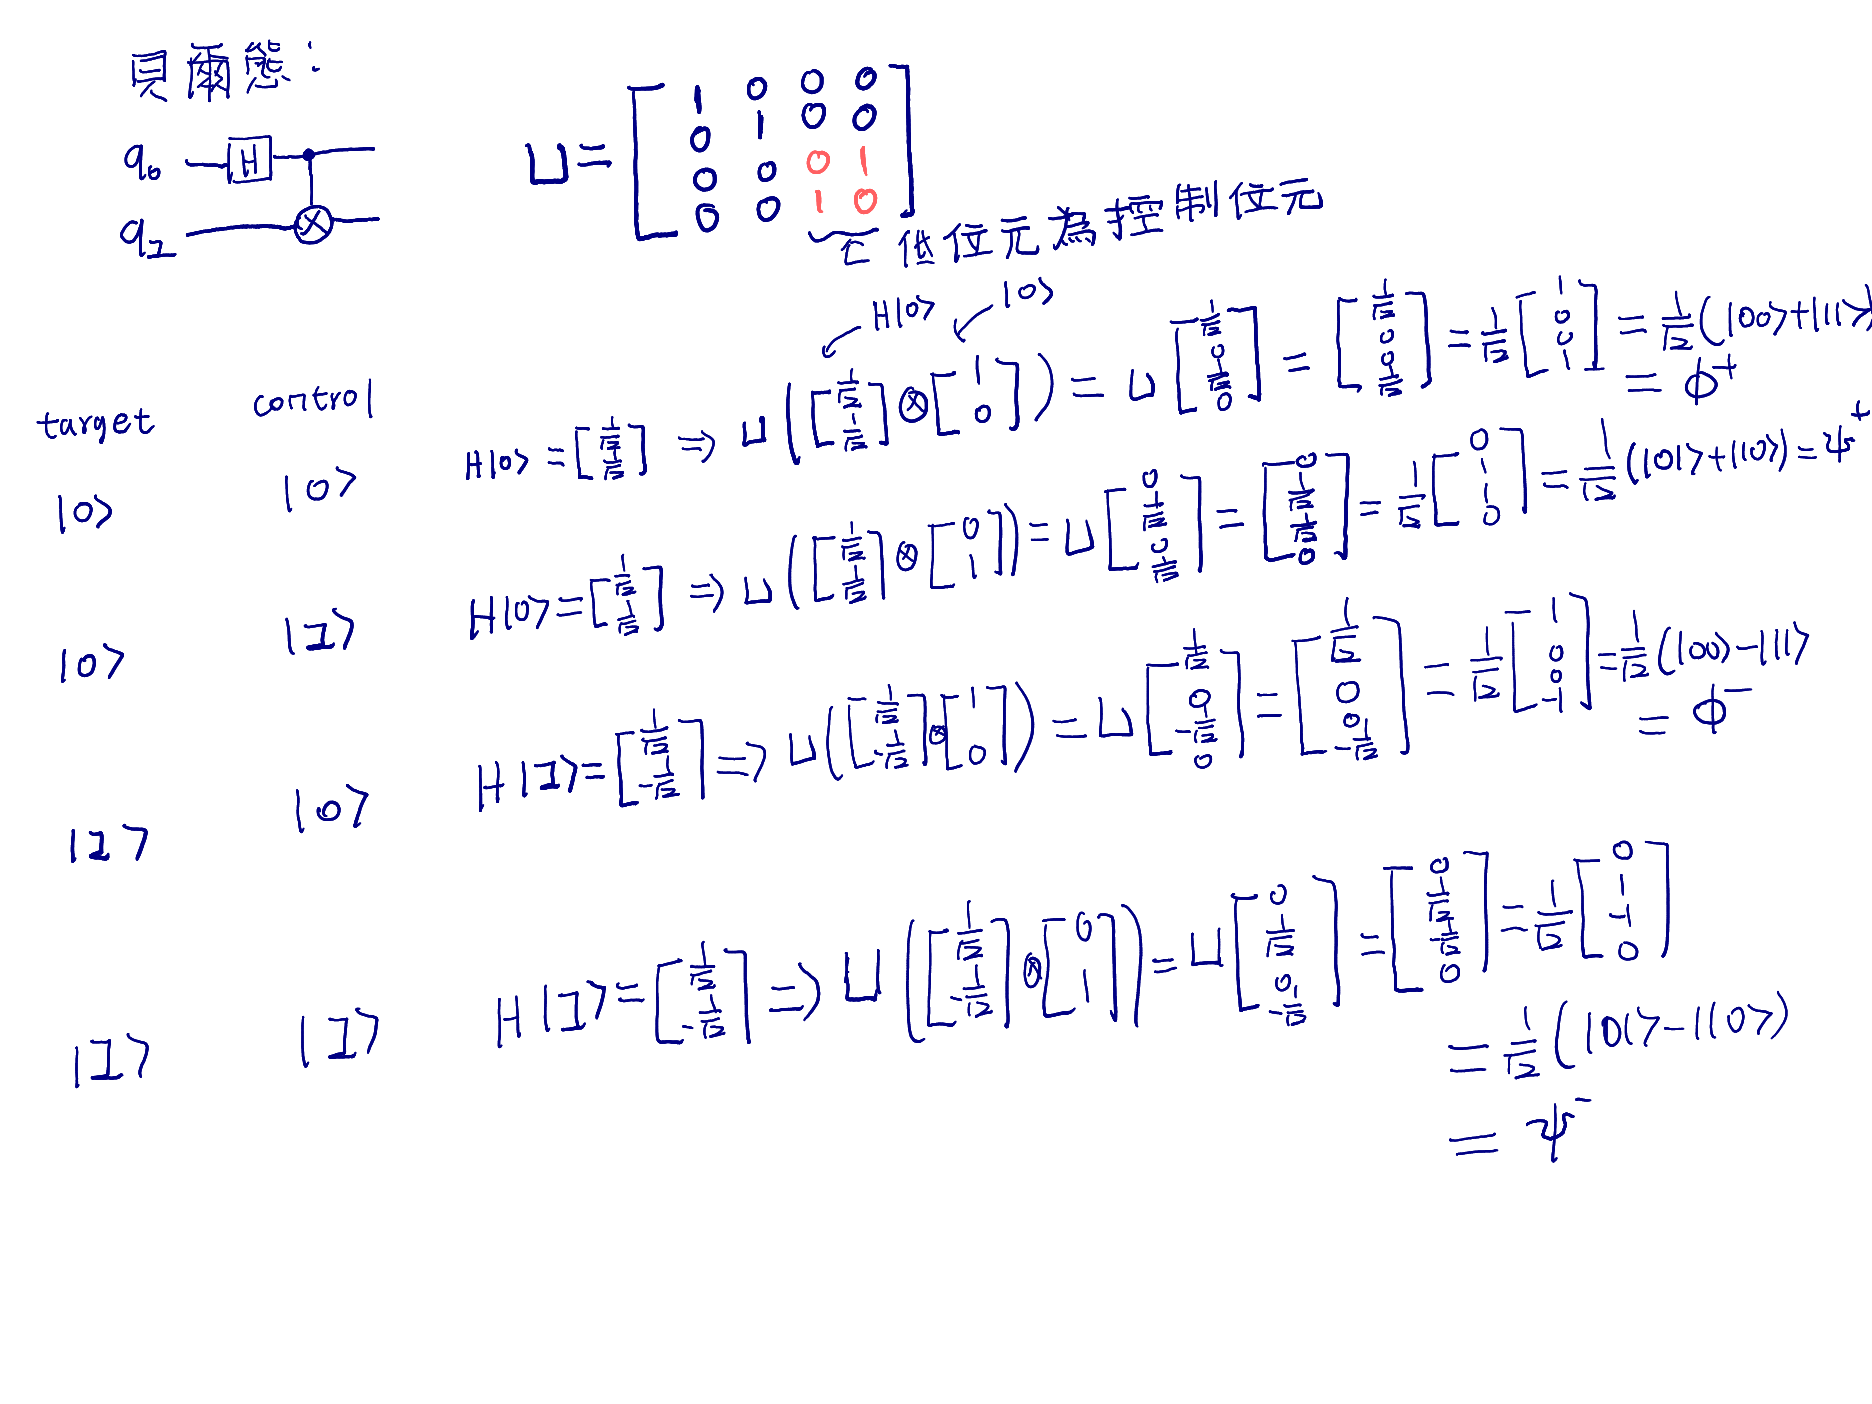 貝爾態:
q₀ H
q₁
U = [1 0 0 0; 0 1 0 0; 0 0 0 1; 0 0 1 0]
低位元為控制位元
H|0> |0>
target control
|0> |0> H|0> = [1/√2; 1/√2] ⇒ U([1/√2; 1/√2] ⊗ [1; 0]) = U[1/√2; 0; 1/√2; 0] = [1/√2; 0; 0; 1/√2] = 1/√2 [1; 0; 0; 1] = 1/√2 (|00>+|11>)
= ϕ⁺
|0> |1> H|0> = [1/√2; 1/√2] ⇒ U([1/√2; 1/√2] ⊗ [0; 1]) = U[0; 1/√2; 0; 1/√2] = [0; 1/√2; 1/√2; 0] = 1/√2 [0; 1; 1; 0] = 1/√2 (|01>+|10>) = ψ⁺
|1> |0> H|1> = [1/√2; -1/√2] ⇒ U([1/√2; -1/√2] ⊗ [1; 0]) = U[1/√2; 0; -1/√2; 0] = [1/√2; 0; 0; -1/√2] = 1/√2 [1; 0; 0; -1] = 1/√2 (|00>-|11>
= ϕ⁻
|1> |1> H|1> = [1/√2; -1/√2] ⇒ U([1/√2; -1/√2] ⊗ [0; 1]) = U[0; 1/√2; 0; -1/√2] = [0; 1/√2; -1/√2; 0] = 1/√2 [0; 1; -1; 0]
= 1/√2 (|01>-|10>)
= ψ⁻